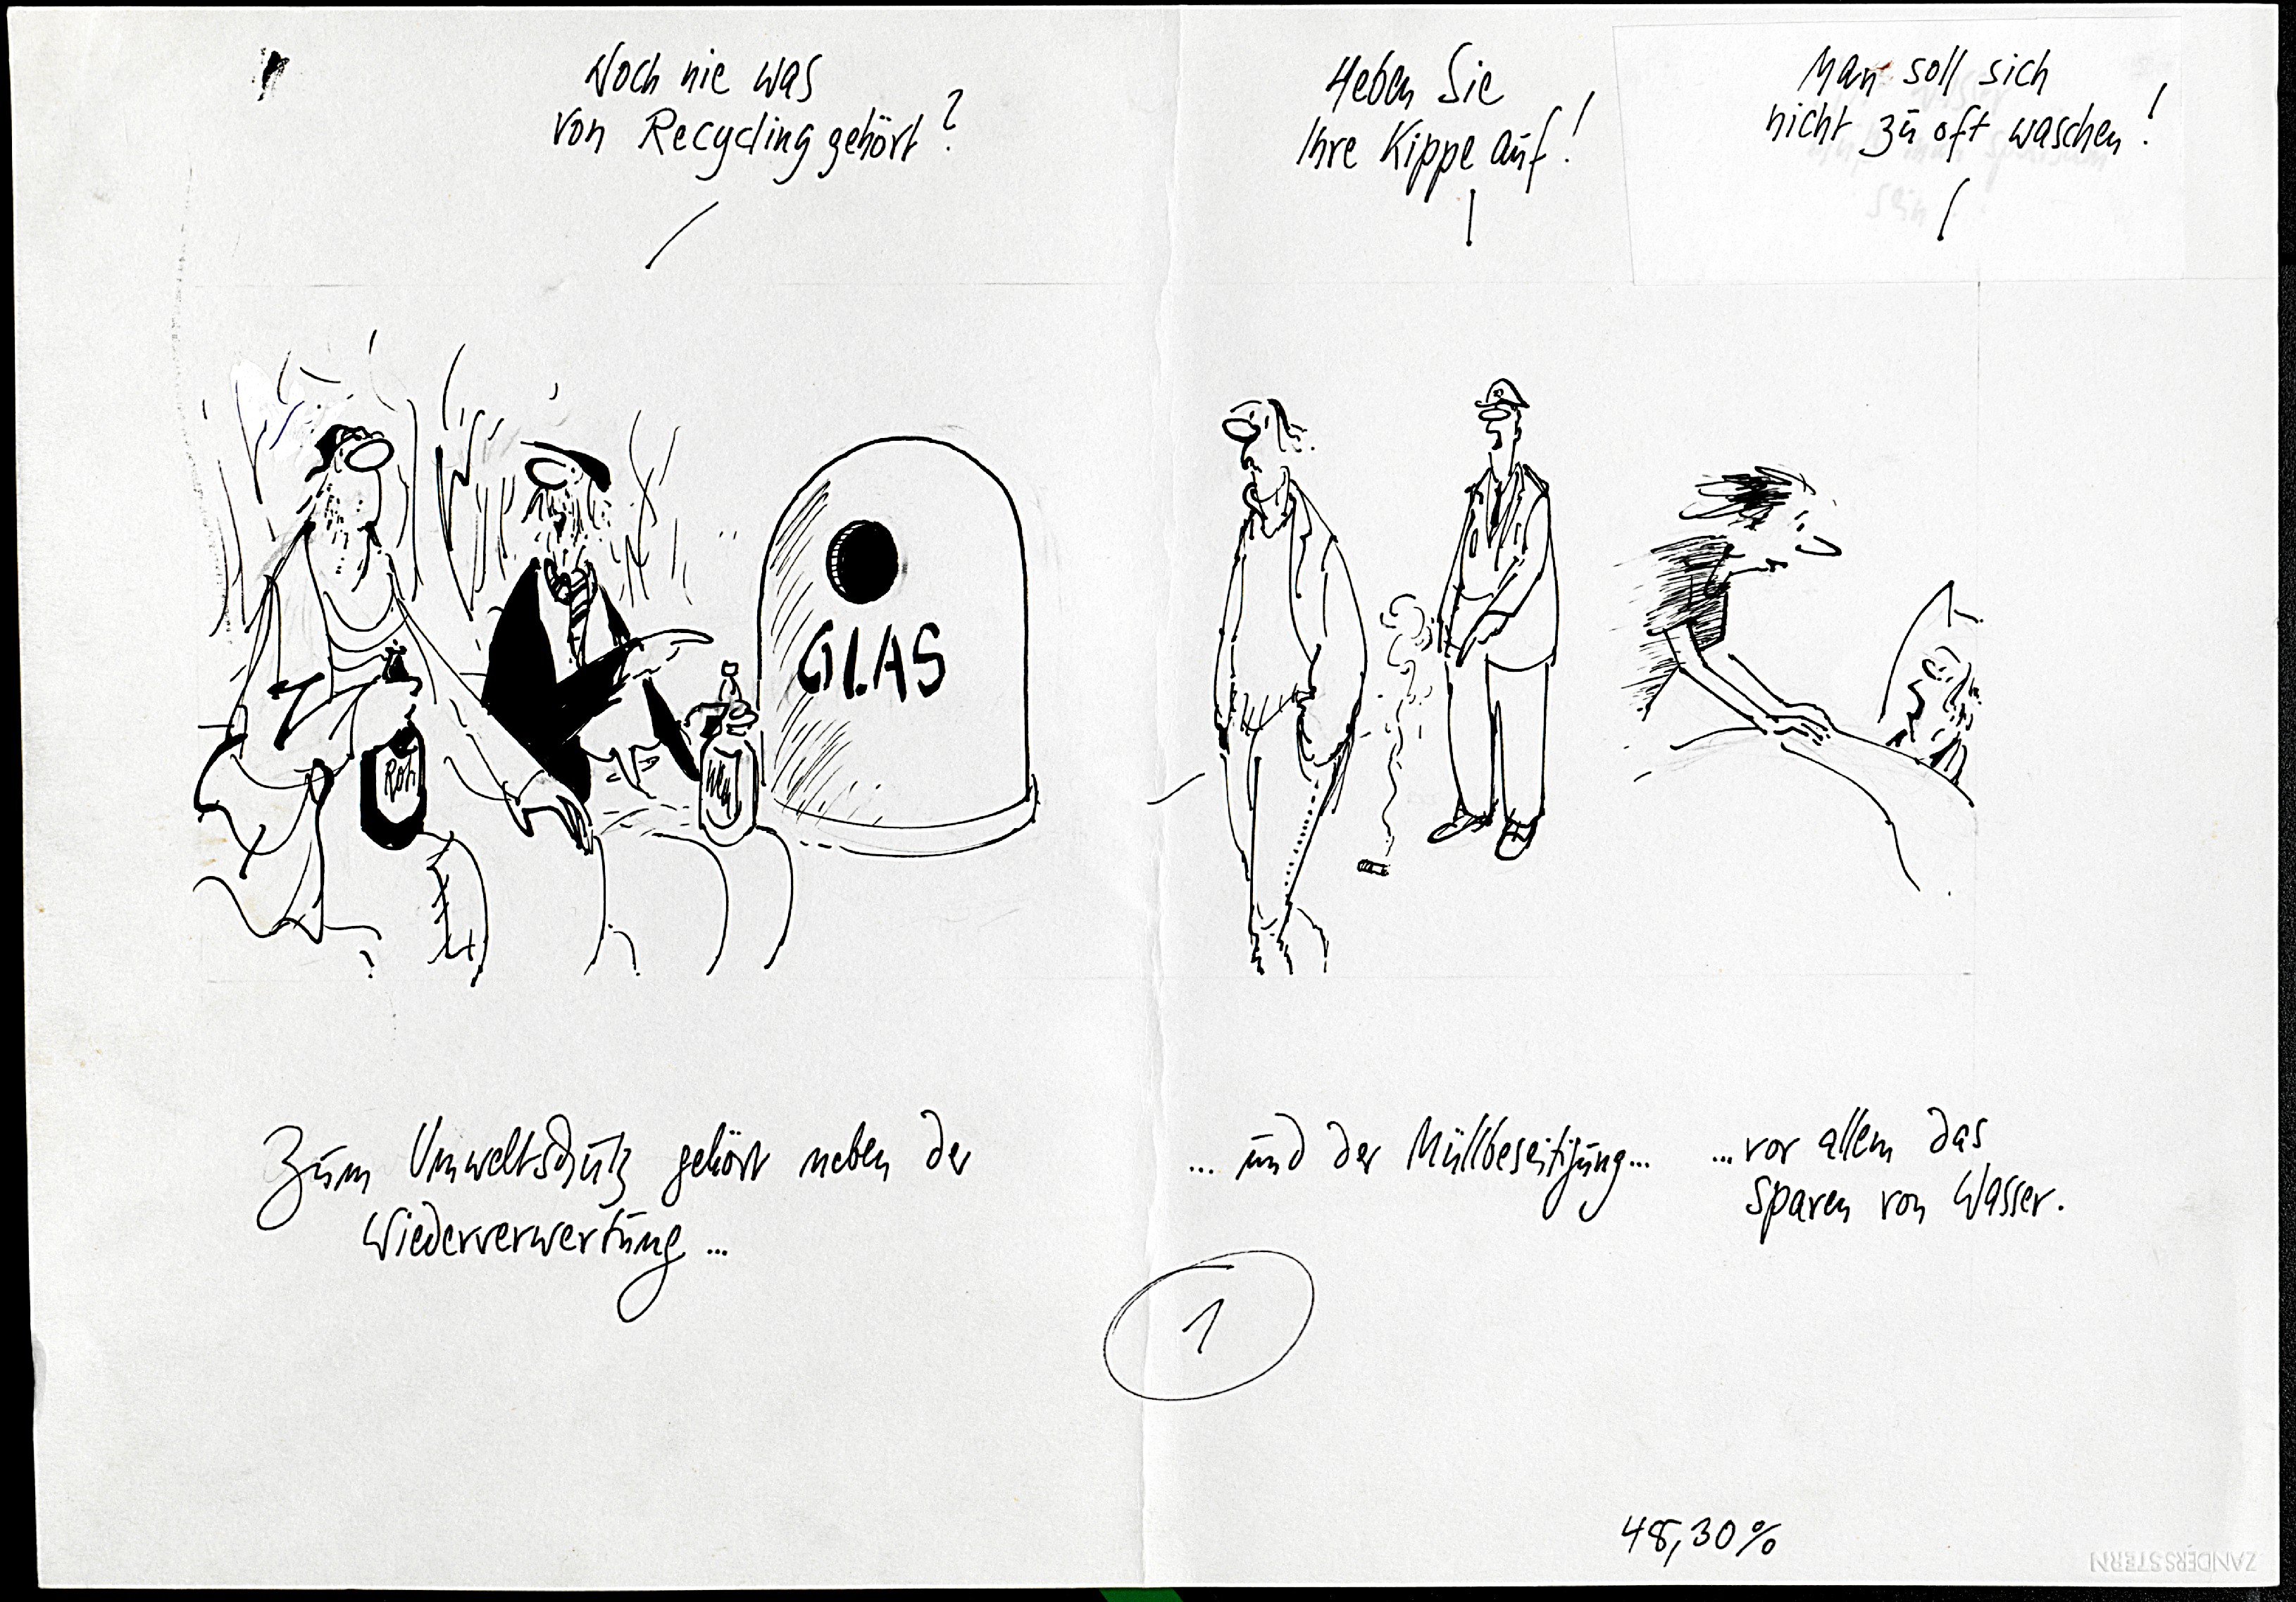 Noch nie was
von Recycling gehört?
Heben Sie
Ihre Kippe auf!
Man soll sich
nicht zu oft waschen!
GLAS
Rot
Zum Umweltschutz gehört neben der
Wiederverwertung...
... und der Müllbeseitigung...
...vor allem das
Sparen von Wasser.
1
48,30%
ZANDERSSTERN